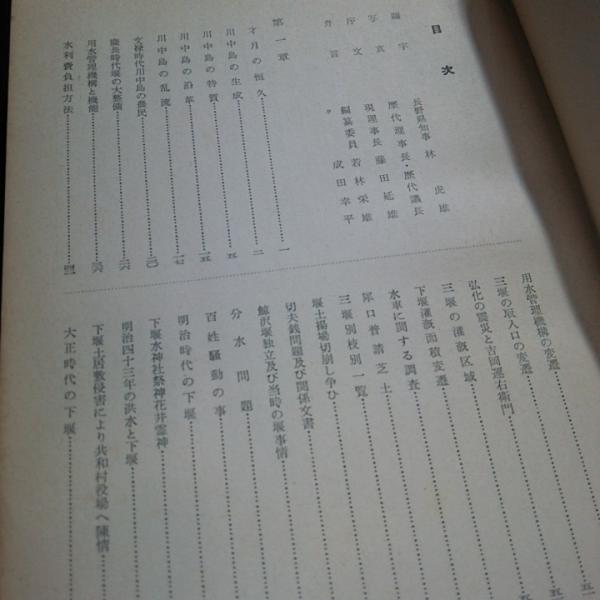 目次
題字 長野県知事 林虎雄
写真 歴代理事長・歴代議長
序文 現理事長 藤田延雄
〃 若林栄雄
弁言 編纂委員 成田幸平
第一章
才月の恒久 一
川中島の生成 二
川中島の特質 五
川中島の沿革 一五
川中島の乱流 一七
文禄時代川中島の農民 二〇
慶長時代堰の大整備 二六
用水管理機構と機能
水利費負担方法
用水管理機構の変遷 五一
三堰の取入口の変遷 五
弘化の震災と吉岡運右衛門 五
三堰の灌漑区域
下堰灌漑面積変遷
水車に関する調査
犀口普請芝土
三堰別枝別一覧
堰土揚場切崩し争ひ
切夫銭問題及び関係文書
鯨沢堰独立及び当時の堰事情
分水問題
百姓騒動の事
明治時代の下堰
下堰水神社祭神花井霊神
明治四十三年の洪水と下堰
下堰土居敷侵害により共和村役場へ陳情
大正時代の下堰